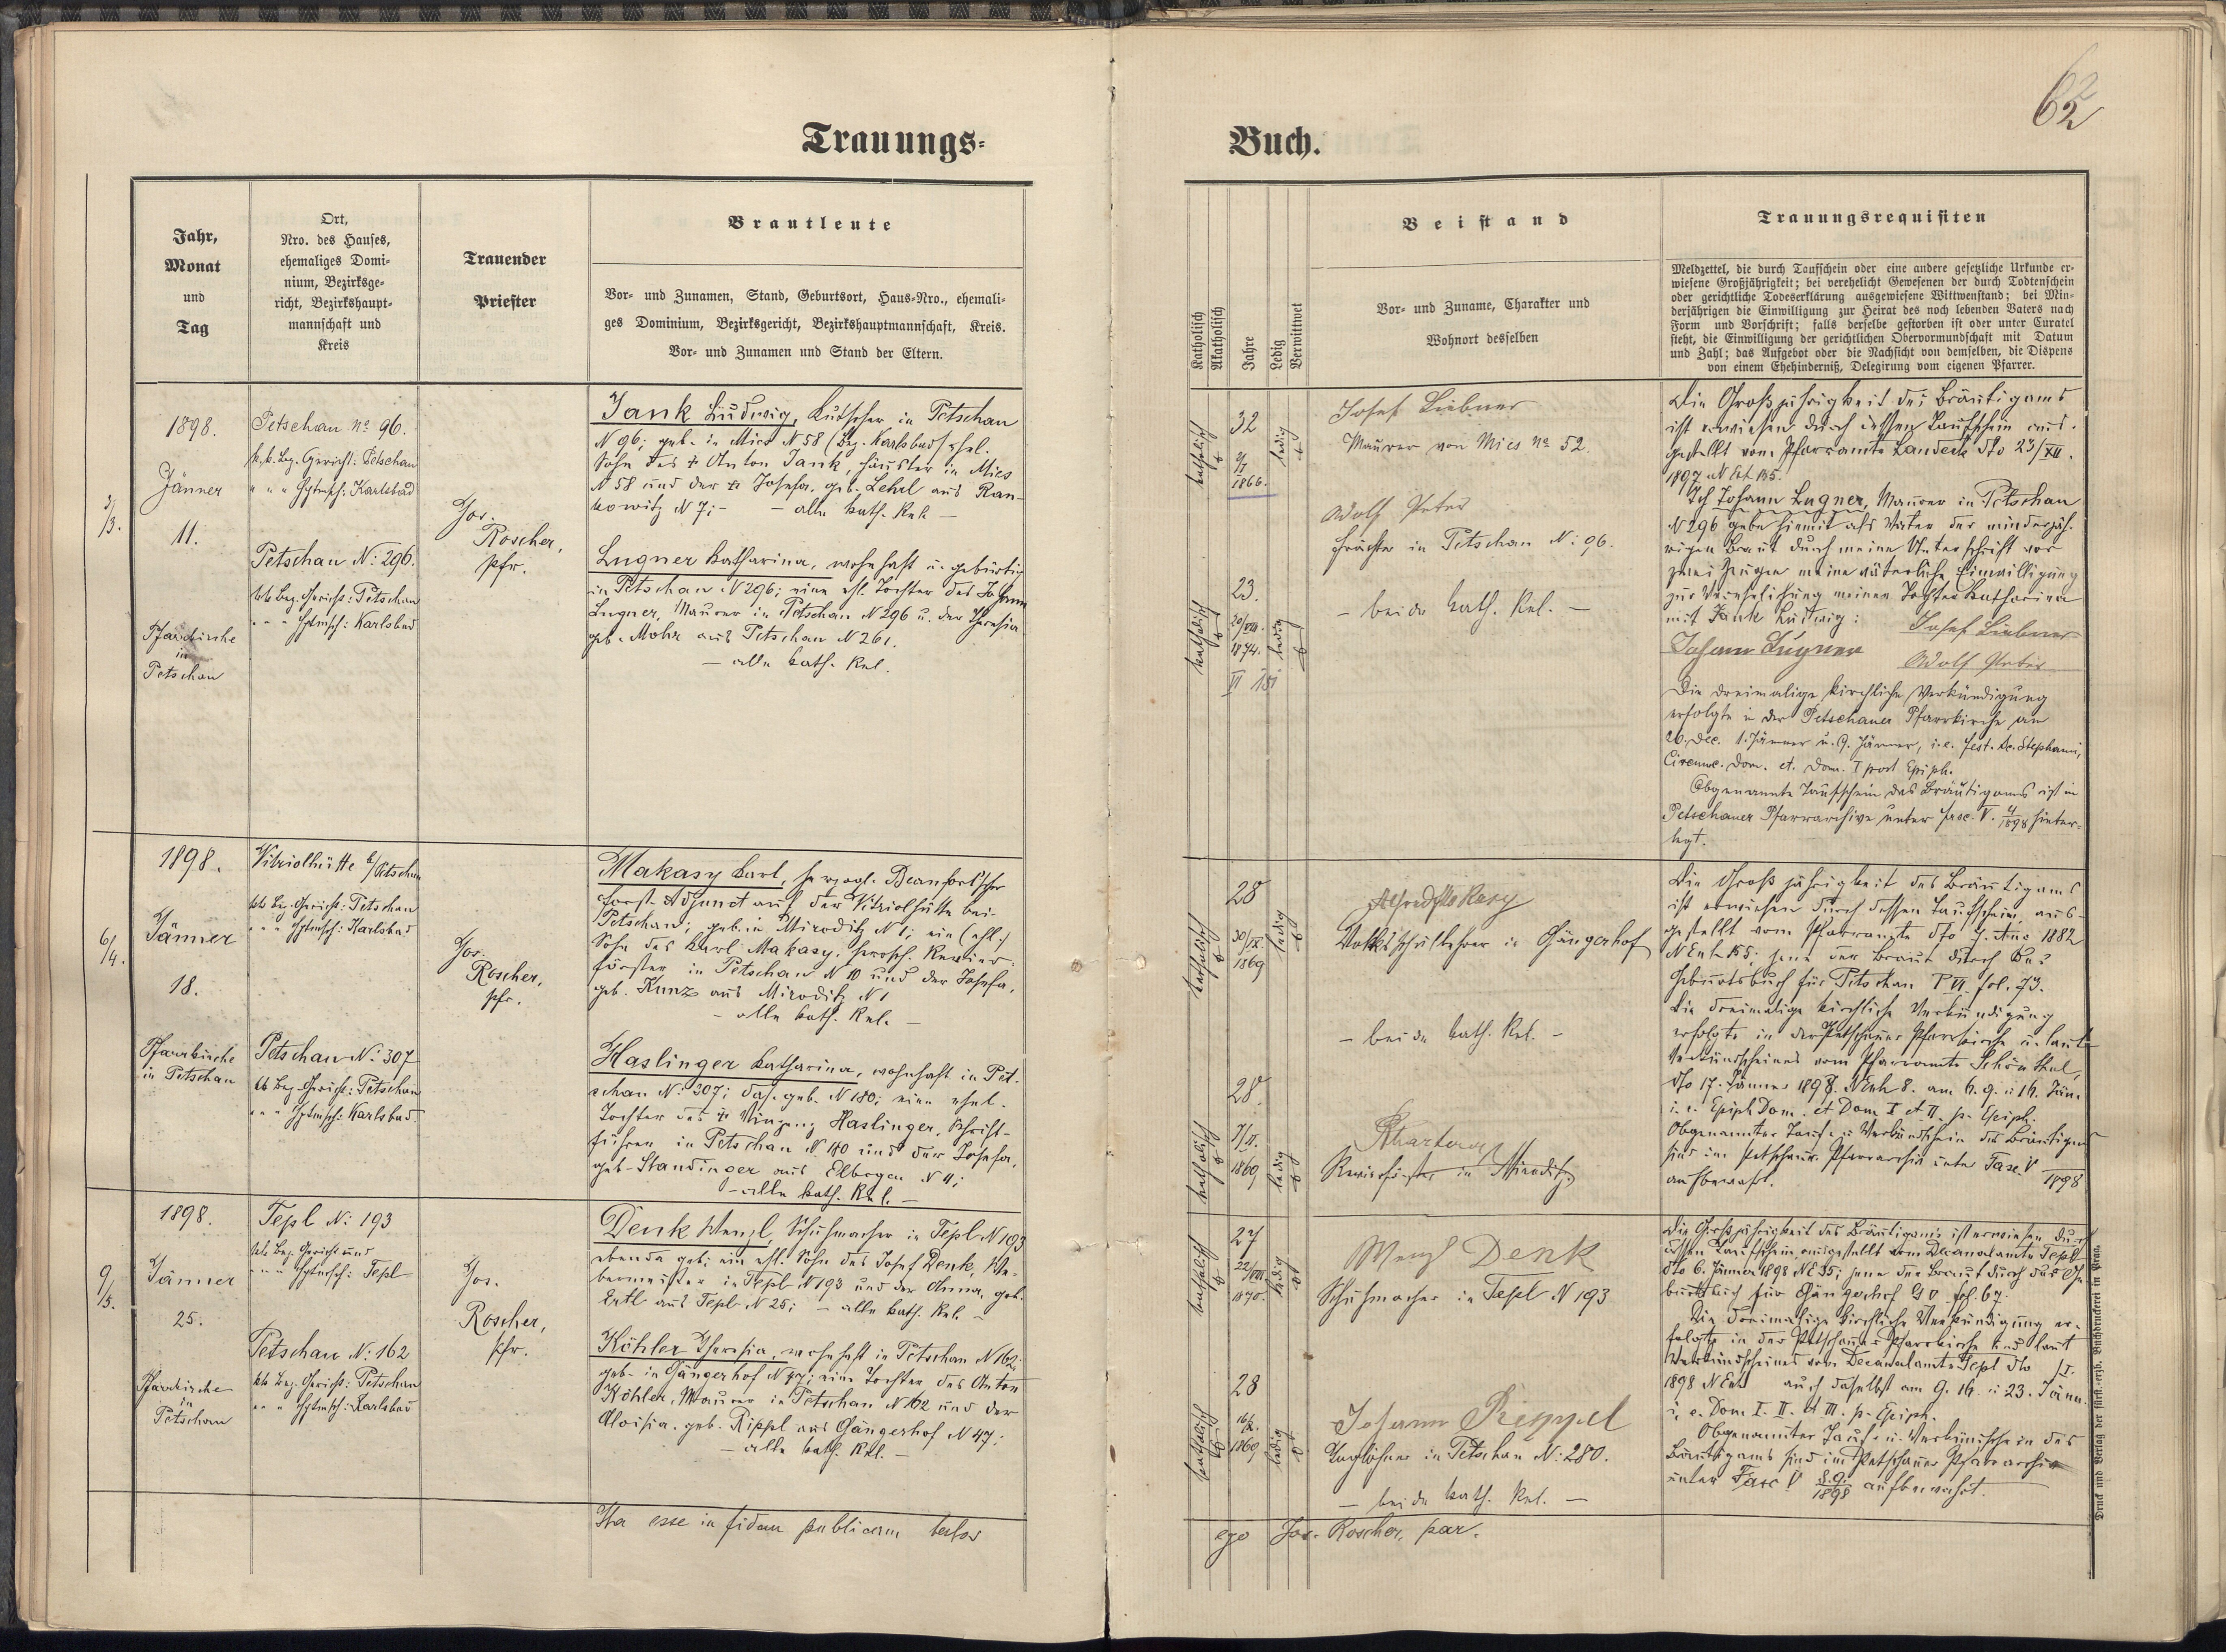 62
Trauungs-
Buch.
Jahr,
Monat
und
Tag
Ort,
Nro. des Hauses,
ehemaliges Domi-
nium, Bezirksge-
richt, Bezirkshaupt-
mannschaft und
Kreis
Trauender
Priester
Brautleute
Vor- und Zunamen, Stand, Geburtsort, Haus-Nro., ehemali-
ges Dominium, Bezirksgericht, Bezirkshauptmannschaft, Kreis.
Vor- und Zunamen und Stand der Eltern.
Katholisch
Akatholisch
Jahre
Ledig
Verwittwet
Beistand
Vor- und Zuname, Charakter und
Wohnort desselben
Trauungsrequisiten
Meldzettel, die durch Taufschein oder eine andere gesetzliche Urkunde er-
wiesene Großjährigkeit; bei verehelicht Gewesenen der durch Todtenschein
oder gerichtliche Todeserklärung ausgewiesene Wittwenstand; bei Min-
derjährigen die Einwilligung zur Heirat des noch lebenden Vaters nach
Form und Vorschrift; falls derselbe gestorben ist oder unter Curatel
steht, die Einwilligung der gerichtlichen Obervormundschaft mit Datum
und Zahl; das Aufgebot oder die Nachsicht von demselben, die Dispens
von einem Ehehinderniß, Delegirung vom eigenen Pfarrer.
3/3.
1898.
Jänner
11.
Pfarrkirche
in
Petschau
Petschau No 96.
k. k. Bez. Gericht: Petschau
" " " Hptmsch: Karlsbad
Petschau N: 296.
kk Bez. Gericht: Petschau
" " " Hptmsch: Karlsbad
Jos.
Roscher,
Pfr.
Jank Ludwig, Kutscher in Petschau
N 96; geb. in Mies N 58 (Bz. Karlsbad) ehel.
Sohn des † Anton Jank, Häusler in Mies
N 58 und der † Josefa, geb. Lehrl aus Ran-
kowitz N 7; - - alle kath. Rel. -
Lugner Katharina, wohnhaft u. gebürtig
in Petschau N 296; eine ehl. Tochter des Johann
Lugner, Maurer in Petschau N 296 u. der Theresia
geb. Mohr aus Petschau N 261.
- alle kath. Rel.
katholisch
32
9/I
1866.
ledig
katholisch
23.
20/VIII.
1874.
VI 151
ledig
Josef Liebner
Maurer von Mies No 52.
Adolf Peter
in Petschau N: 96.
- beide kath. Rel. -
Die Großjährigkeit des Bräutigams
ist erwiesen durch dessen Taufschein aus-
gestellt vom Pfarramte Landek dto 23/XII.
1897 N Exh 135.
Ich Johann Lugner, Maurer in Petschau
N 296 gebe hiemit als Vater der minderjäh-
rigen Braut durch meine Unterschrift vor
zwei Zeugen meine väterliche Einwilligung
zur Verehelichung meiner Tochter Katharina
mit Jank Ludwig: Josef Liebner
Johann Lugner Adolf Peter
Die dreimalige kirchliche Verkündigung
erfolgte in der Petschauer Pfarrkirche am
26. Dec. 1. Jänner u. 9. Jänner, i. e. fest. sc. Stephani,
Circumc. Dom. et. Dom. I post Epiph.
Obgenannte Taufschein des Bräutigams ist im
Petschauer Pfarrarchive unter fasc. V. 4/1898 hinter-
legt.
6/4.
1898.
Jänner
18.
Pfarrkirche
in Petschau
Vitriolhütte b/Petschau
kk Bez. Gericht: Petschau
" " " Hptmsch: Karlsbad
Petschau N: 307
kk Bez. Gericht: Petschau
" " " Hptmsch: Karlsbad
Jos.
Roscher,
Pfr.
Makasy Karl, herzogl. Beaufort'scher
Forst-Adjunct auf der Vitriolhütte bei
Petschau; geb. in Miroditz N 1; ein (ehl.)
Sohn des Karl Makasy, herrsch. Revier-
förster in Petschau N 10 und der Josefa,
geb. Kunz aus Miroditz N 1
- alle kath. Rel. -
Haslinger Katharina, wohnhaft in Pet-
schau N: 307; das. geb. N 180; eine ehel.
Tochter des † Vinzenz Haslinger, Schrift-
führer in Petschau N 180 und der Josefa,
geb. Standinger aus Elbogen N 11;
- alle kath. Rel. -
katholisch
28
30/IX.
1869
ledig
katholisch
28.
7/II.
1869
ledig
Volksschullehrer in Gängerhof
- beide kath. Rel. -
Revierförster in Miroditz
Die Großjährigkeit des Bräutigams
ist erwiesen durch dessen Taufschein, aus-
gestellt vom Pfarramte dto 1882
N Exh 155; jene der Braut durch das
Geburtsbuch für Petschau T VI. fol. 73.
Die dreimalige kirchliche Verkündigung
erfolgte in der Petschauer Pfarrkirche u. laut
Verkündscheines vom Pfarramte Schönthal,
dto 17. Jänner 1898. N Exh 8. am 6. 9. u 16. Jän.
i. e. Epiph Dom. et Dom I et II. p. Epiph.
Obgenannter Tauf- u Verkündschein des Bräutigams
sind im Petschauer Pfarrarchiv unter Fasc. V /1898
aufbewahrt.
9/5.
1898.
Jänner
25.
Pfarrkirche
in
Petschau
Tepl N: 193
kk Bez. Gericht und
" " " Hptmsch: Tepl
Petschau N: 162
kk Bez. Gericht: Petschau
" " Hptmsch: Karlsbad
Jos.
Roscher,
Pfr.
Denk Wenzl, Schuhmacher in Tepl N 193
ebenda geb; ein ehl. Sohn des Josef Denk, We-
bermeister in Tepl N 193 und der Anna, geb.
Ertl aus Tepl N 25; - alle kath. Rel. -
Köhler Theresia, wohnhaft in Petschau N 162;
geb. in Gängerhof N 47; eine Tochter des Anton
Köhler, Maurer in Petschau N 162 und der
Aloisia. geb. Rippl aus Gängerhof N 47;
- alle kath. Rel. -
katholisch
27
22/VIII
1870.
ledig
katholisch
28
16/X.
1869
ledig
Wenzl Denk
Schuhmacher in Tepl N 193
Johann Rieppel
Taglöhner in Petschau N: 280.
- beide kath. Rel. -
Die Großjährigkeit des Bräutigams ist erwiesen durch
dessen Taufschein, ausgestellt vom Decanalamte Tepl
dto 6. Jänner 1898 NE 35; jene der Braut durch das Ge-
burtsbuch für Gängerhof fol. 67.
Die dreimalige kirchliche Verkündigung er-
folgte in der Petschauer Pfarrkirche und laut
Verkündscheines vom Decanalamte Tepl dto /I.
1898 N Exh auch daselbst am 9. 16. u 23. Jänn.
i. e. Dom I. II. et III. p. Epiph.
Obgenannter Tauf- u. Verkündschein des
Bräutigams sind im Petschauer Pfarrarchiv
unter Fasc V 8.9./1898 aufbewahrt.
Ita esse in fidem publicam testor
ego Jos. Roscher, par.
Druck und Verlag der fürst.-erzb. Buchdruckerei in Prag.